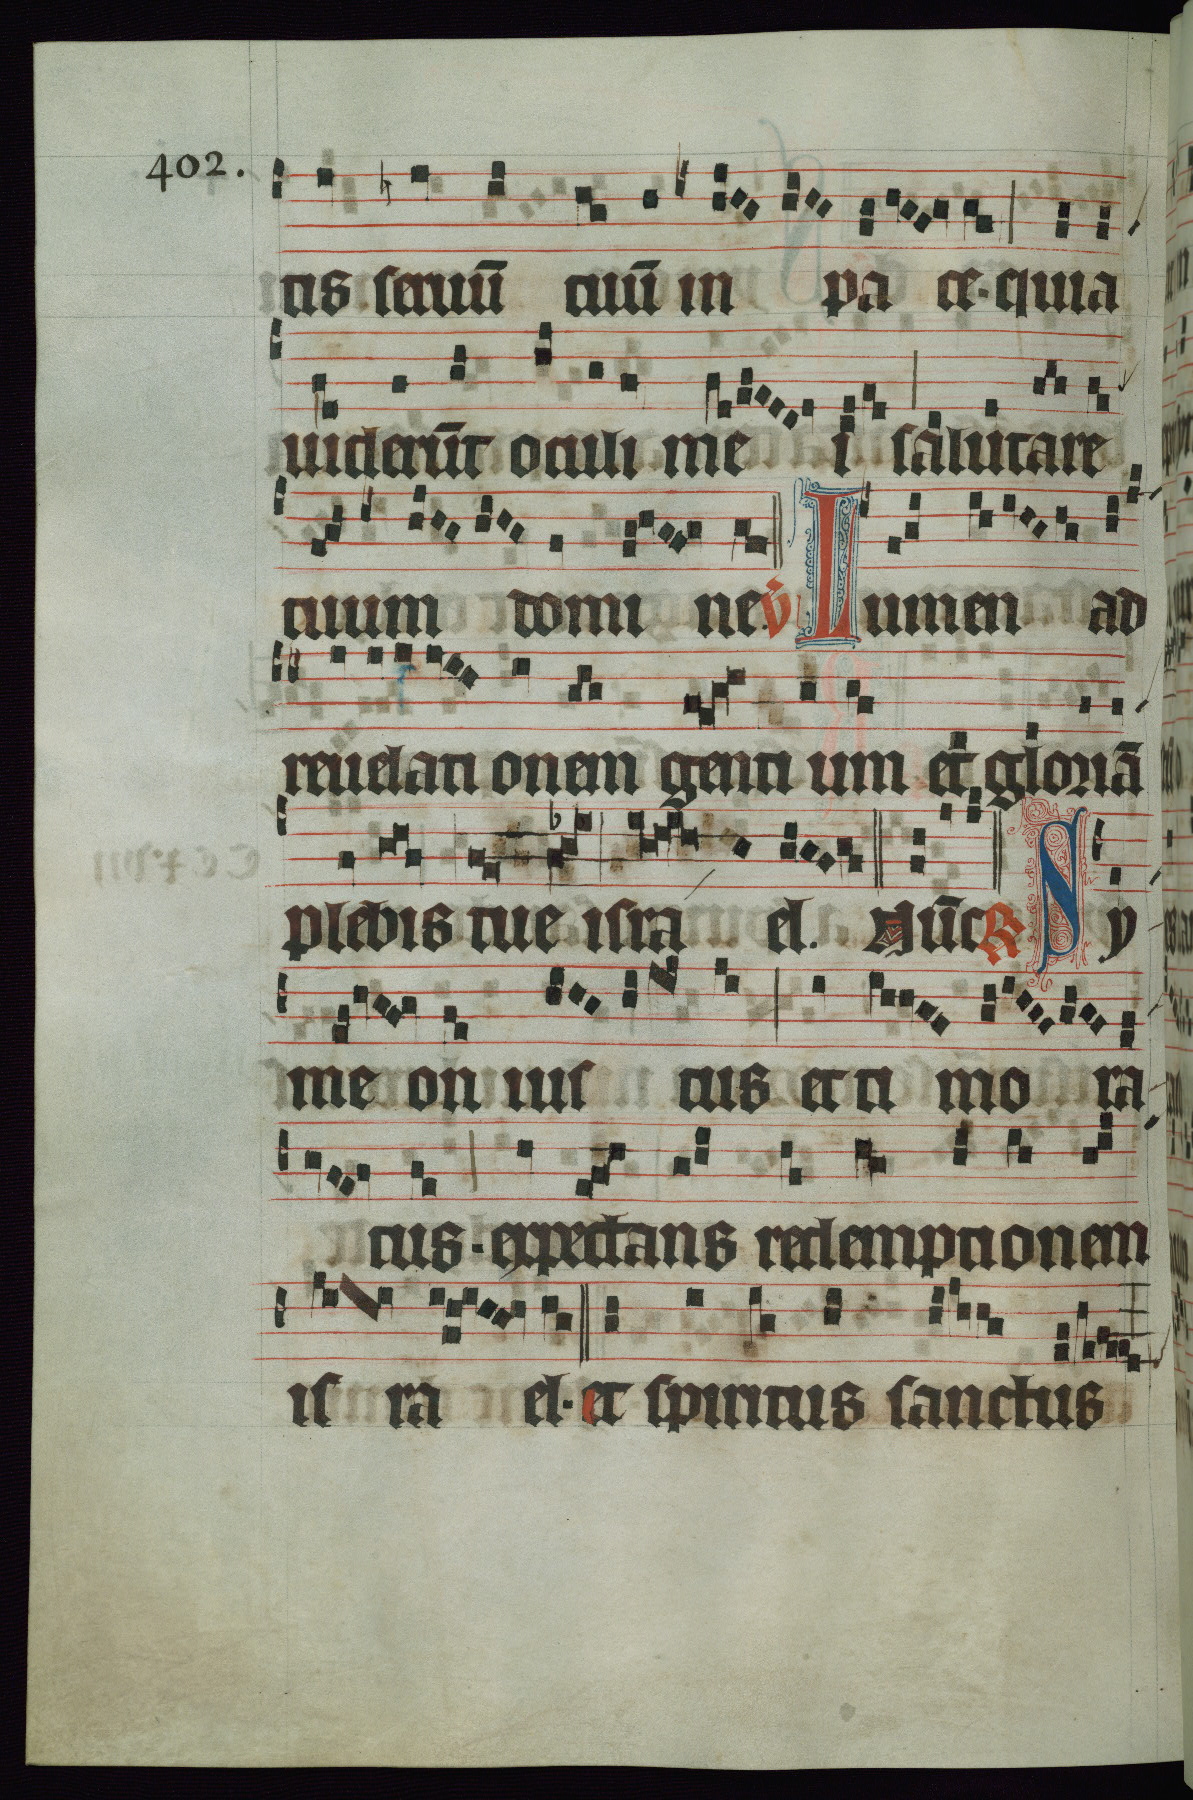 402.
tis seruū tuū in pa ce· quia
uiderūt oculi me i salutare
tuum domi ne. V Lumen ad
reuelati onem genti um et gloriā
plebis tue isra el. Nūc R Sy
me on ius tus et ti mo ra
tus· expectans redemptionem
is ra el· et spiritus sanctus